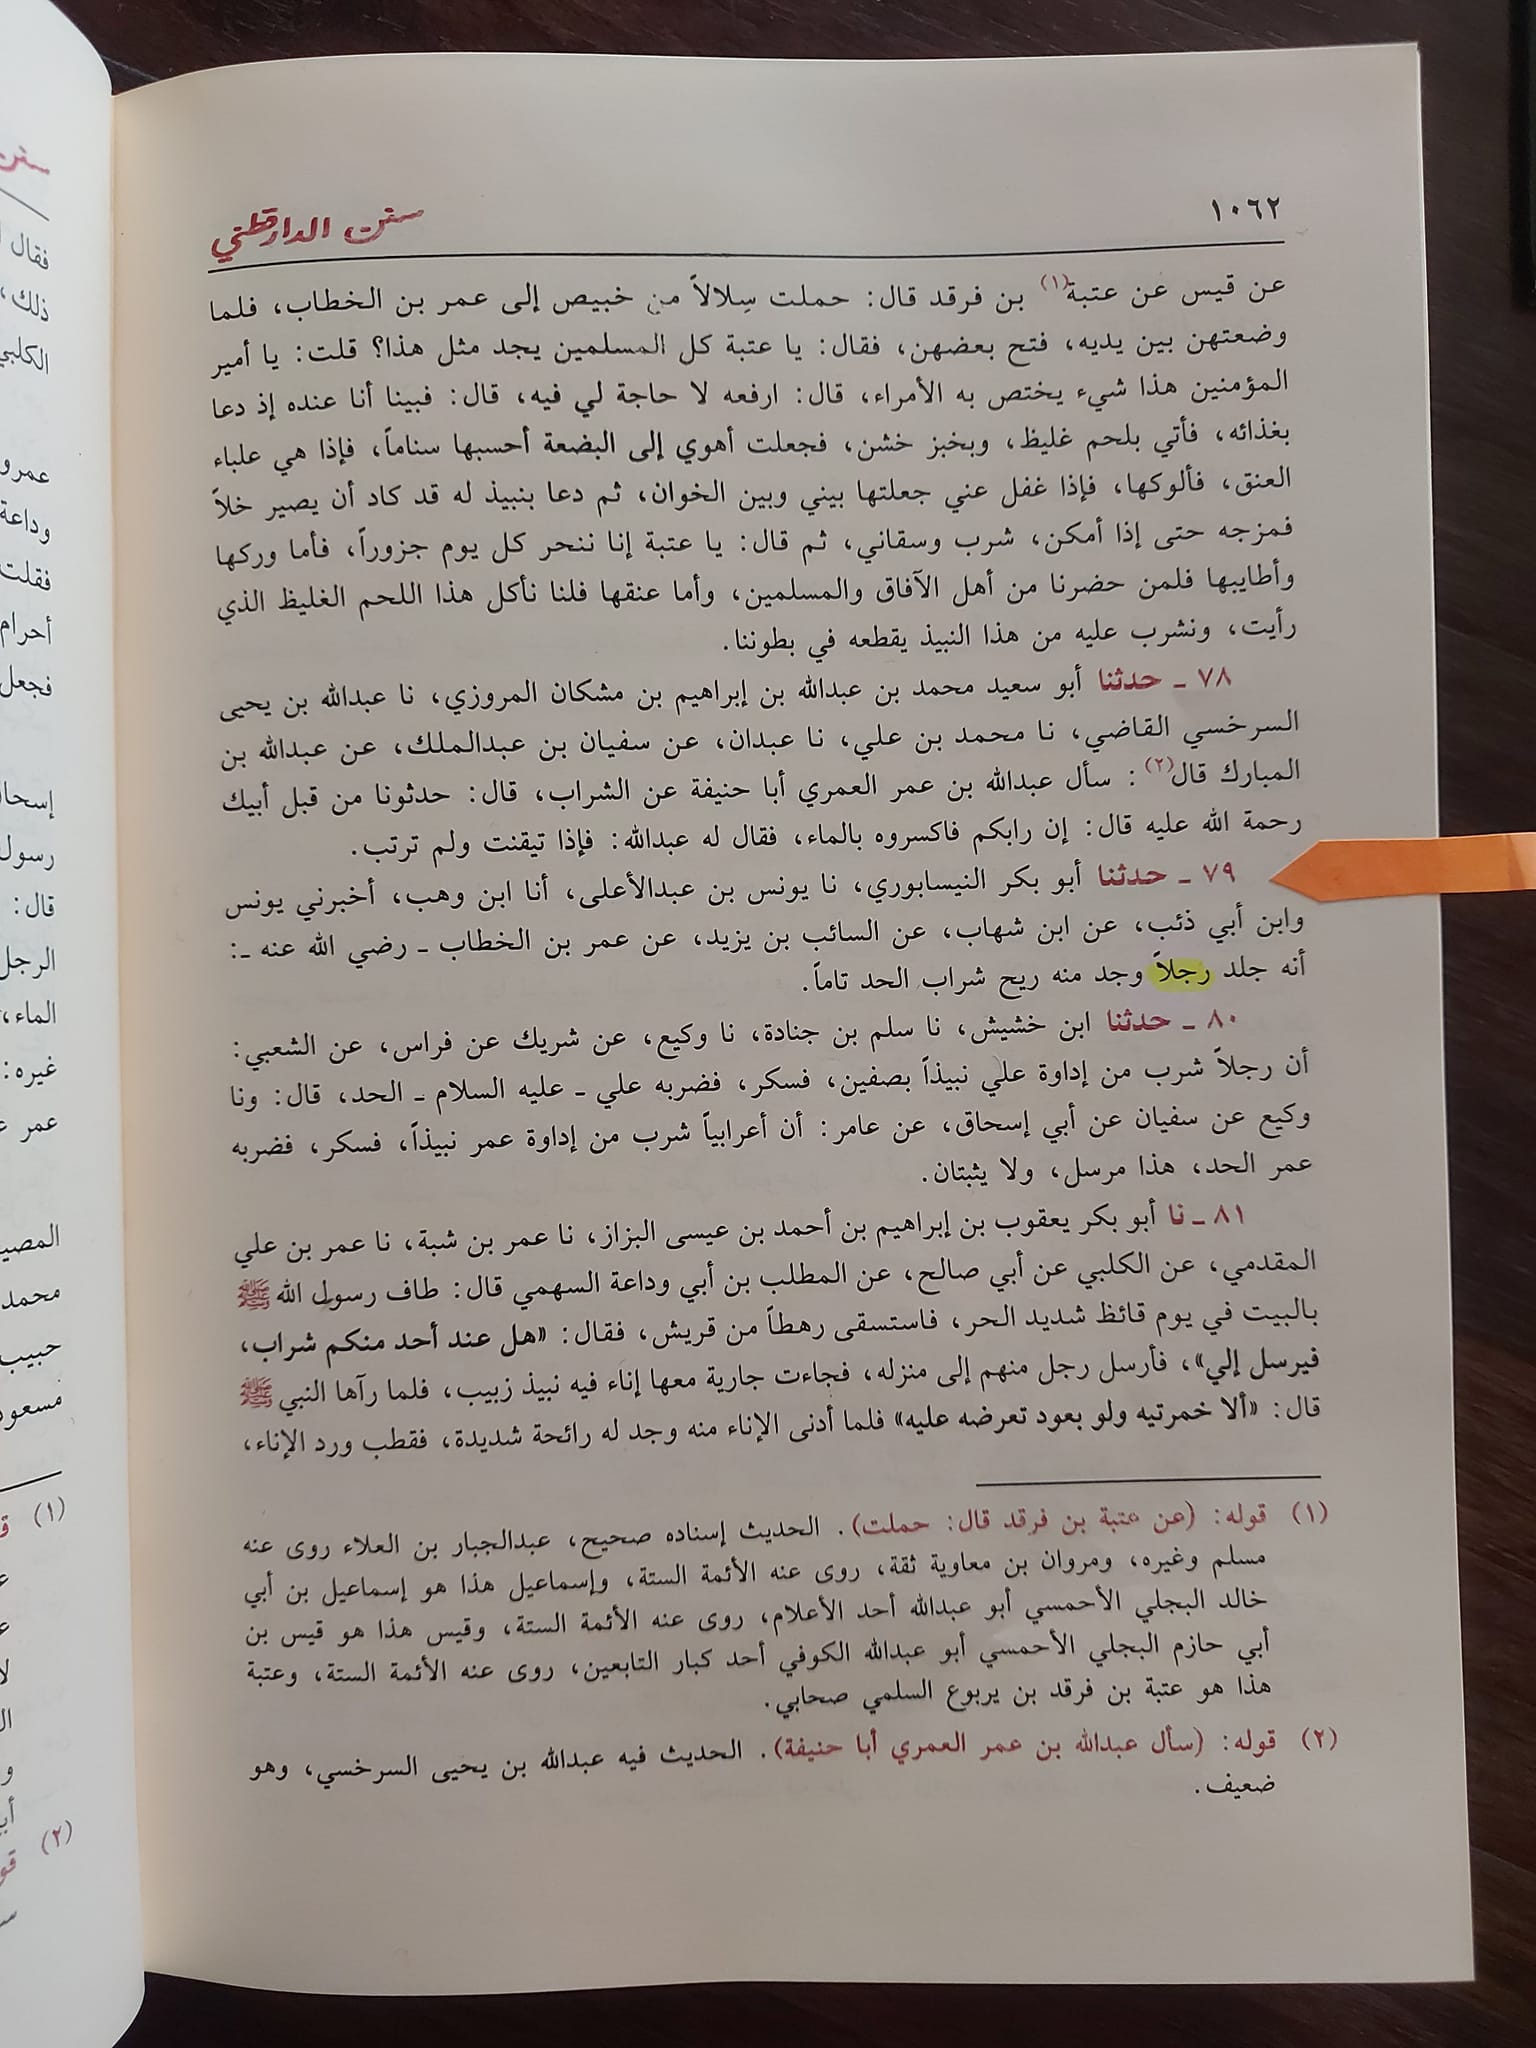 ١٠٦٢
سنن الدارقطني
عن قيس عن عتبة(١) بن فرقد قال: حملت سِلالاً من خبيص إلى عمر بن الخطاب، فلما
وضعتهن بين يديه، فتح بعضهن، فقال: يا عتبة كل المسلمين يجد مثل هذا؟ قلت: يا أمير
المؤمنين هذا شيء يختص به الأمراء، قال: ارفعه لا حاجة لي فيه، قال: فبينا أنا عنده إذ دعا
بغذائه، فأتي بلحم غليظ، وبخبز خشن، فجعلت أهوي إلى البضعة أحسبها سناماً، فإذا هي علباء
العنق، فألوكها، فإذا غفل عني جعلتها بيني وبين الخوان، ثم دعا بنبيذ له قد كاد أن يصير خلاً
فمزجه حتى إذا أمكن، شرب وسقاني، ثم قال: يا عتبة إنا ننحر كل يوم جزوراً، فأما وركها
وأطايبها فلمن حضرنا من أهل الآفاق والمسلمين، وأما عنقها فلنا نأكل هذا اللحم الغليظ الذي
رأيت، ونشرب عليه من هذا النبيذ يقطعه في بطوننا.
٧٨ ـ حدثنا أبو سعيد محمد بن عبدالله بن إبراهيم بن مشكان المروزي، نا عبدالله بن يحيى
السرخسي القاضي، نا محمد بن علي، نا عبدان، عن سفيان بن عبدالملك، عن عبدالله بن
المبارك قال(٢): سأل عبدالله بن عمر العمري أبا حنيفة عن الشراب، قال: حدثونا من قبل أبيك
رحمة الله عليه قال: إن رابكم فاكسروه بالماء، فقال له عبدالله: فإذا تيقنت ولم ترتب.
٧٩ ـ حدثنا أبو بكر النيسابوري، نا يونس بن عبدالأعلى، أنا ابن وهب، أخبرني يونس
وابن أبي ذئب، عن ابن شهاب، عن السائب بن يزيد، عن عمر بن الخطاب ـ رضي الله عنه ـ:
أنه جلد رجلاً وجد منه ريح شراب الحد تاماً.
٨٠ ـ حدثنا ابن خشيش، نا سلم بن جنادة، نا وكيع، عن شريك عن فراس، عن الشعبي:
أن رجلاً شرب من إداوة علي نبيذاً بصفين، فسكر، فضربه علي ـ عليه السلام ـ الحد، قال: ونا
وكيع عن سفيان عن أبي إسحاق، عن عامر: أن أعرابياً شرب من إداوة عمر نبيذاً، فسكر، فضربه
عمر الحد، هذا مرسل، ولا يثبتان.
٨١ ـ نا أبو بكر يعقوب بن إبراهيم بن أحمد بن عيسى البزاز، نا عمر بن شبة، نا عمر بن علي
المقدمي، عن الكلبي عن أبي صالح، عن المطلب بن أبي وداعة السهمي قال: طاف رسول الله ﷺ
بالبيت في يوم قائظ شديد الحر، فاستسقى رهطاً من قريش، فقال: «هل عند أحد منكم شراب،
فيرسل إلي»، فأرسل رجل منهم إلى منزله، فجاءت جارية معها إناء فيه نبيذ زبيب، فلما رآها النبي ﷺ
قال: «ألا خمرتيه ولو بعود تعرضه عليه» فلما أدنى الإناء منه وجد له رائحة شديدة، فقطب ورد الإناء،
(١) قوله: (عن عتبة بن فرقد قال: حملت). الحديث إسناده صحيح، عبدالجبار بن العلاء روى عنه
مسلم وغيره، ومروان بن معاوية ثقة، روى عنه الأئمة الستة، وإسماعيل هذا هو إسماعيل بن أبي
خالد البجلي الأحمسي أبو عبدالله أحد الأعلام، روى عنه الأئمة الستة، وقيس هذا هو قيس بن
أبي حازم البجلي الأحمسي أبو عبدالله الكوفي أحد كبار التابعين، روى عنه الأئمة الستة، وعتبة
هذا هو عتبة بن فرقد بن يربوع السلمي صحابي.
(٢) قوله: (سأل عبدالله بن عمر العمري أبا حنيفة). الحديث فيه عبدالله بن يحيى السرخسي، وهو
ضعيف.